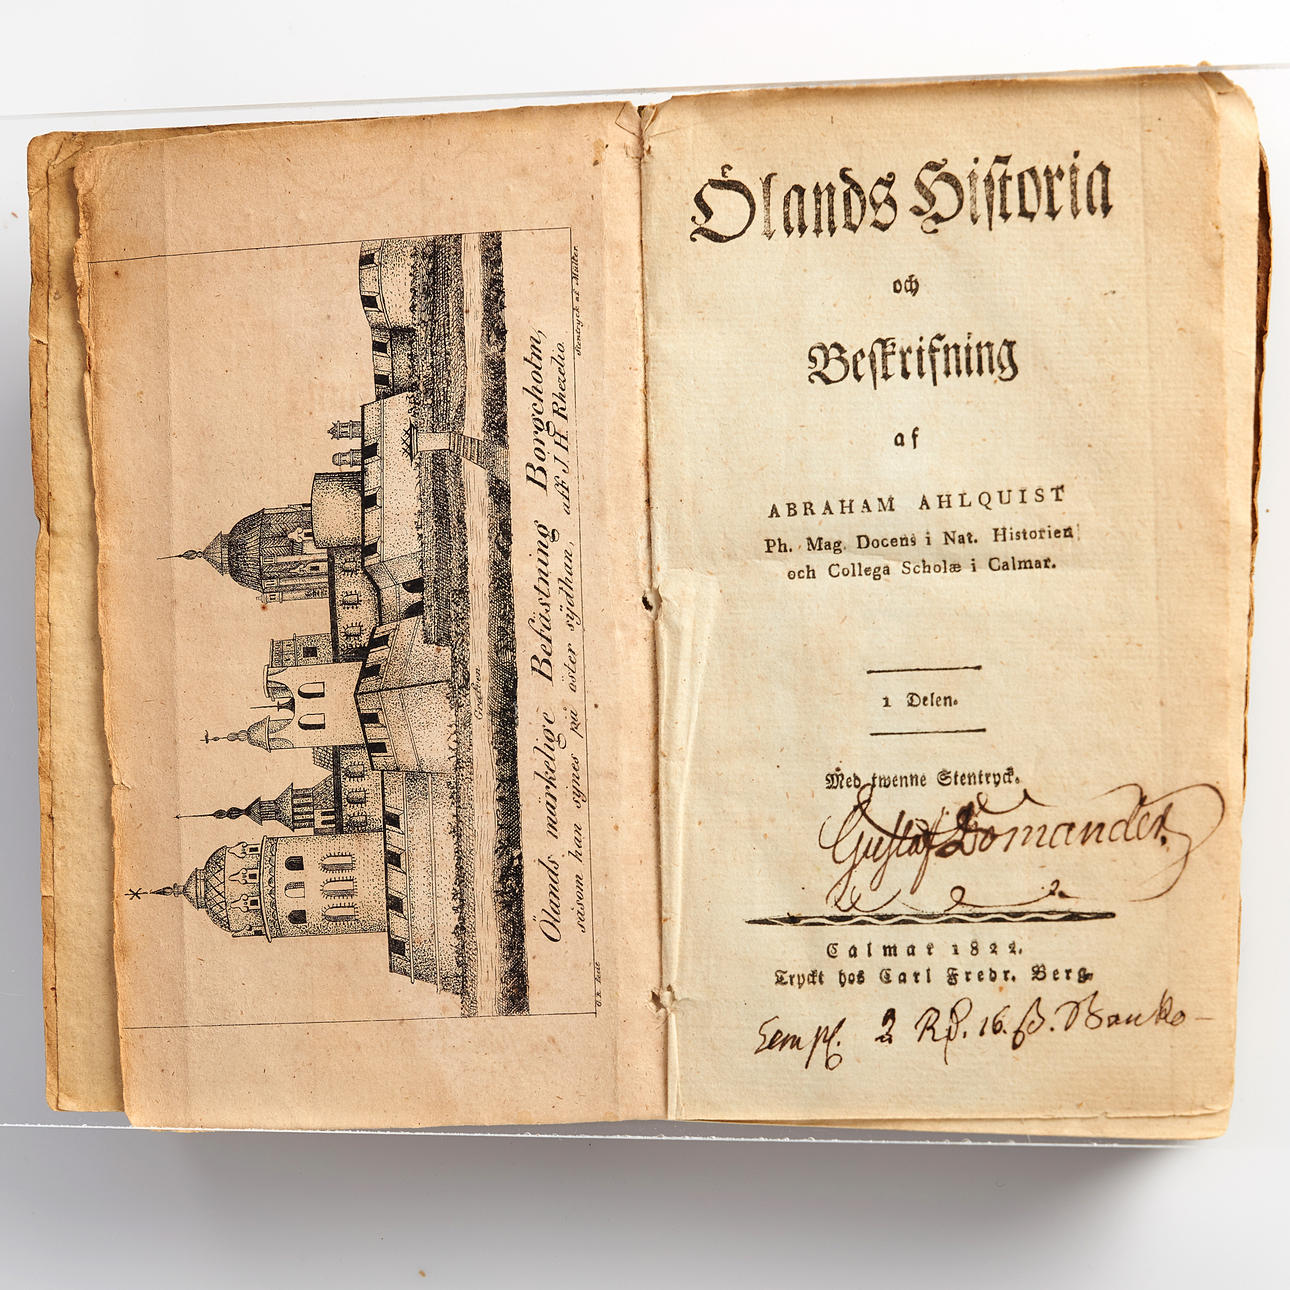 Ölands märkelige Befästning Borgholm,
såsom han synes på öster sÿdhan, aff J H Rhezelio.
Stentryck af Müller
Grafven
Ölands Historia
och
Beskrifning
af
ABRAHAM AHLQUIST
Ph. Mag. Docens i Nat. Historien
och Collega Scholæ i Calmar.
1 Delen.
Med twenne Stentryck.
Gustaf Lomander.
Calmar 1822.
Tryckt hos Carl Fredr. Berg.
Exempl. 2 Rd. 16 ß. Banko